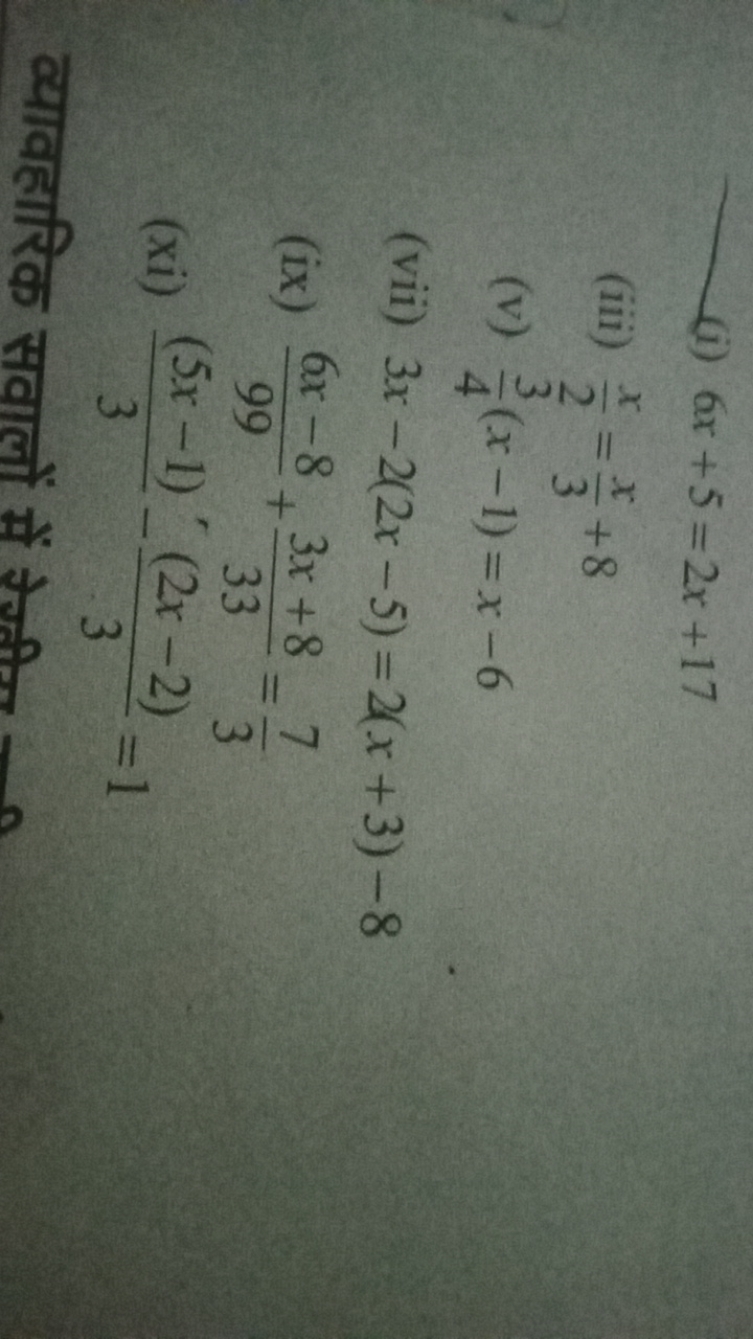 (i) 6x + 5 = 2x + 17
(iii) x/2 = x/3 + 8
(v) 3/4(x − 1) = x − 6
(vii) 3x − 2(2x − 5) = 2(x + 3) − 8
(ix) (6x − 8)/99 + (3x + 8)/33 = 7/3
(xi) (5x − 1)/3 − (2x − 2)/3 = 1
व्यावहारिक सवालों में